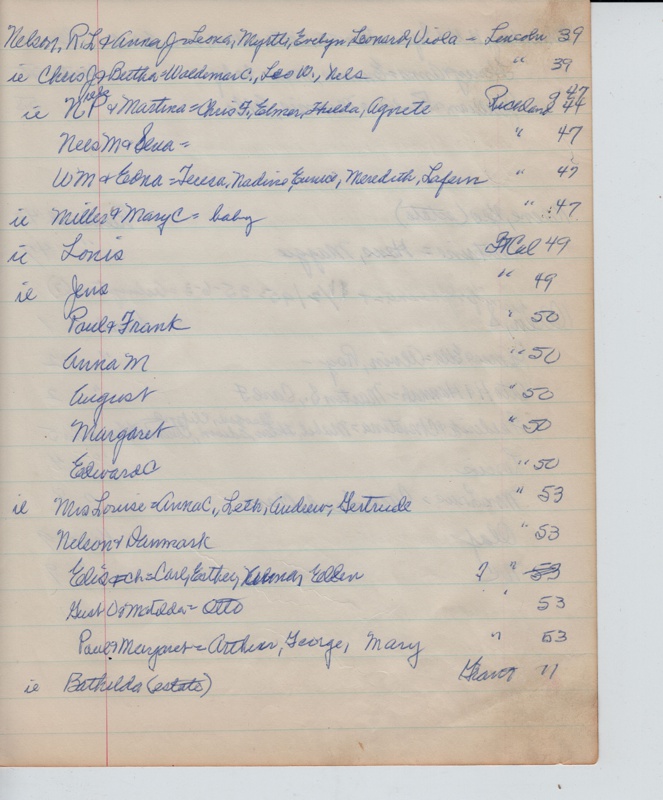 Nelson, R.L & Anna J = Leona, Myrtle, Evelyn, Leonard, Viola - Lincoln 39
ie Chris J & Bertha = Waldemar C., Leo W., Nels " 39
ie N P & Martina = Chris F., Elmer, Hulda, Agnete Richland 9 47 44
Nels M & Sena = " 47
WM & Edna = Teresa, Nadine Eunice, Meredith, Lafern " 47
ie Miller & Mary C = baby " 47
ie Lonis FtCal 49
ie Jens " 49
Paul & Frank " 50
Anna M " 50
August " 50
Margaret " 50
Edward O " 50
ie Mrs Louise = Anna C., Leth, Andrew, Gertrude " 53
Nelson & Danmark " 53
= Carl, Esther, Ellen ? " 53
Gust O & Matilda = Otto " 53
Paul & Margaret = Arthur, George, Mary " 53
ie Bathilda (estate) Grant 11